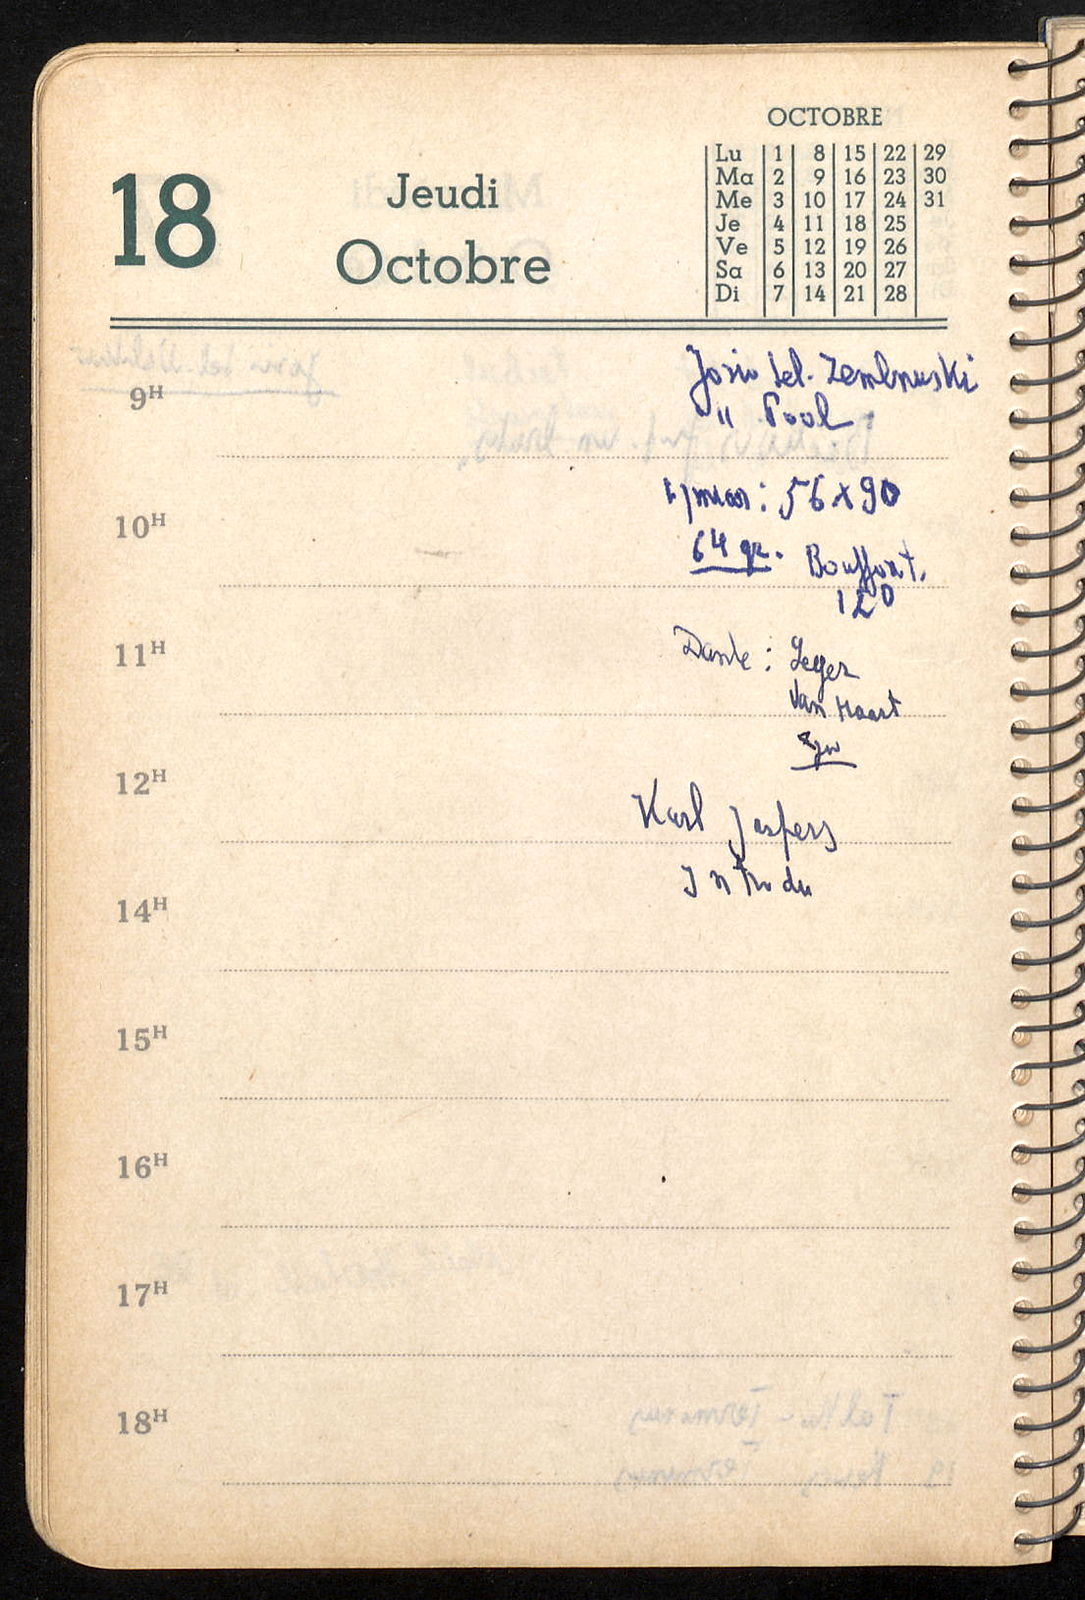 OCTOBRE
18 Jeudi
Octobre
Lu 1 8 15 22 29
Ma 2 9 16 23 30
Me 3 10 17 24 31
Je 4 11 18 25
Ve 5 12 19 26
Sa 6 13 20 27
Di 7 14 21 28
9H
tel.
"
: 56 x 90
10H
64 gr.
120
11H
Dante : Leger
Van
12H
Karl Jaspers
Introdu
14H
15H
16H
17H
18H